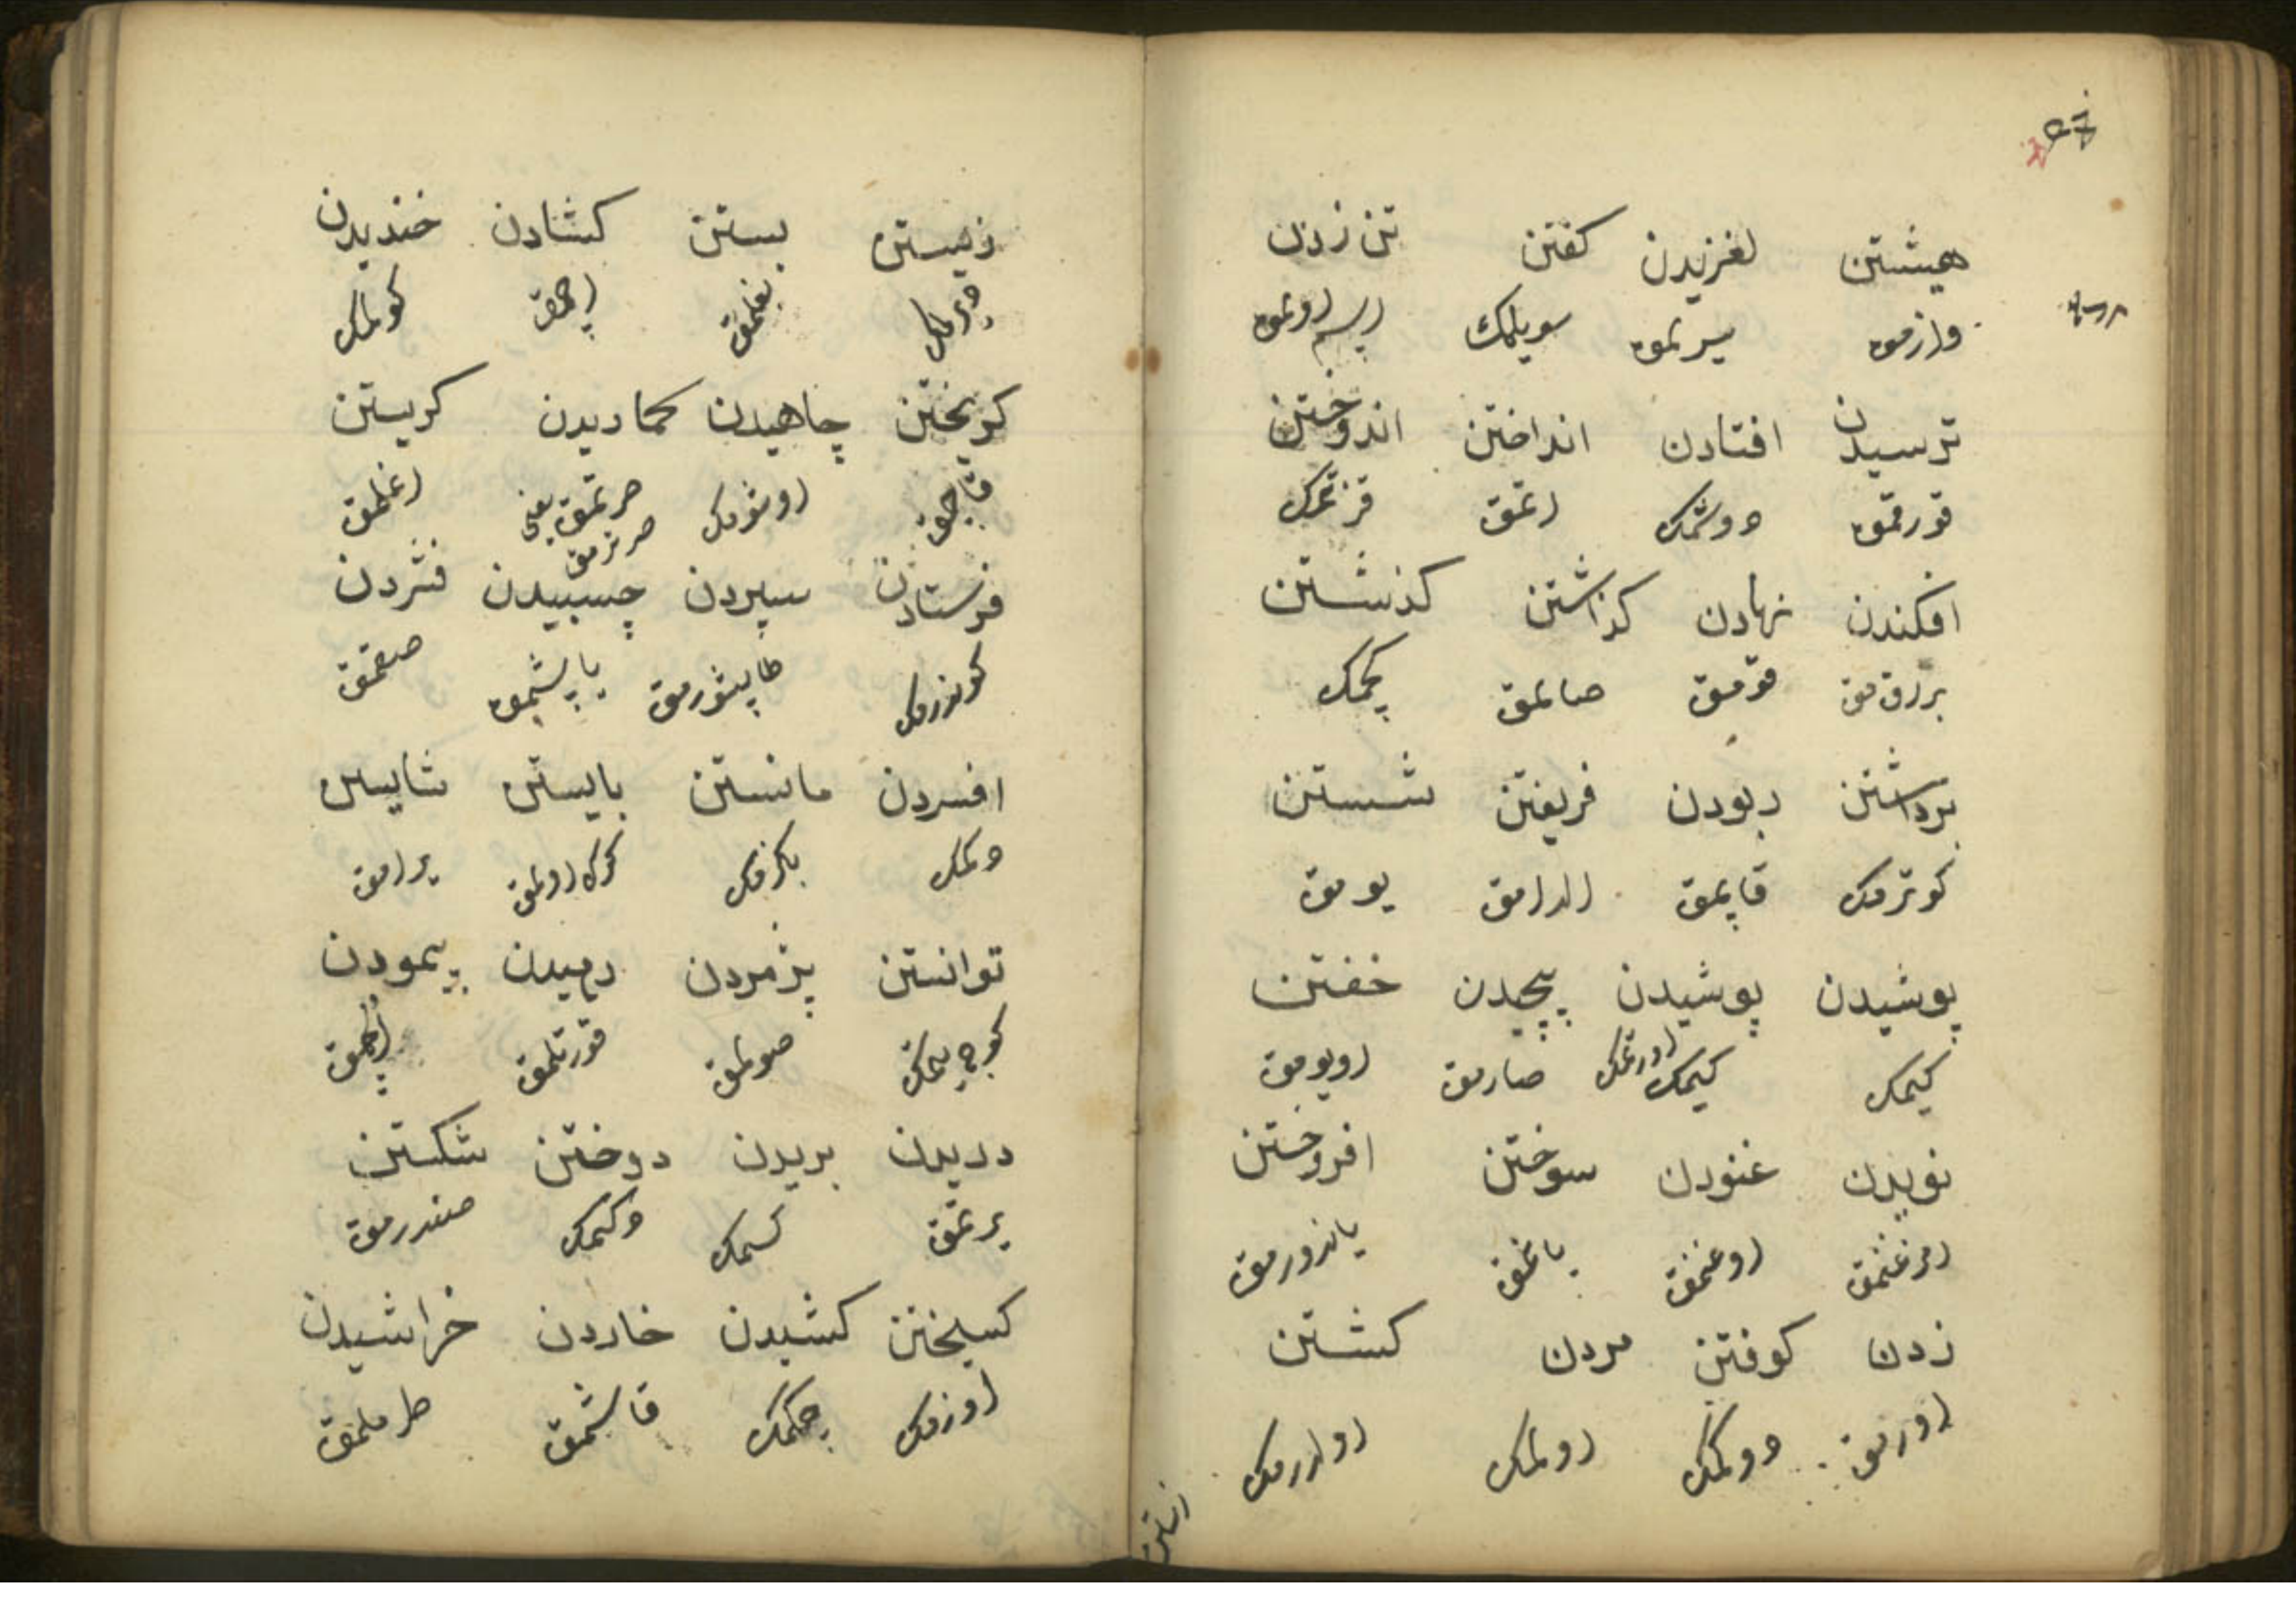 هیشتن لغزیدن کفتن تن زدن
وازمق سیرتمق سویلمك
ترسیدن افتادن انداختن اندوختن
قورقمق دوشمك اتمق قزنمك
افکندن نهادن کذاشتن کذشتن
براقمق قومق صالمق کچمك
برداشتن ربودن فریفتن شستن
کوترمك قاپمق الدامق یومق
پوشیدن پوشیدن پیچیدن خفتن
کیمك کیمك اورتمك صارمق اویومق
نویدن غنودن سوختن افروختن
ایرغنمق اوغنمق یانمق یاندورمق
زدن کوفتن مردن کشتن
اورمق دوکمك اولمك اولدرمك
زیستن
زیستن بستن کشادن خندیدن
دیرلمك بغلمق اچمق کولمك
کریختن چاهیدن چماریدن کریستن
قاچمق اوشومك صرتمق یعنی صرنرمق اغلمق
فرستادن سپردن چسبیدن فشردن
کوندرمك طاپشورمق یاپشمق صقمق
افسردن مانستن بایستن شایستن
دکمك بکزمك کرك اولمق یرامق
توانستن پژمردن رهیدن پیمودن
کوجی یتمك صولمق قورتلمق اولچمق
دریدن بریدن دوختن شکستن
یرتمق کسمك دکمك صندرمق
کسیختن کشیدن خاریدن خراشیدن
اوزمك چکمك قاشمق طرملمق